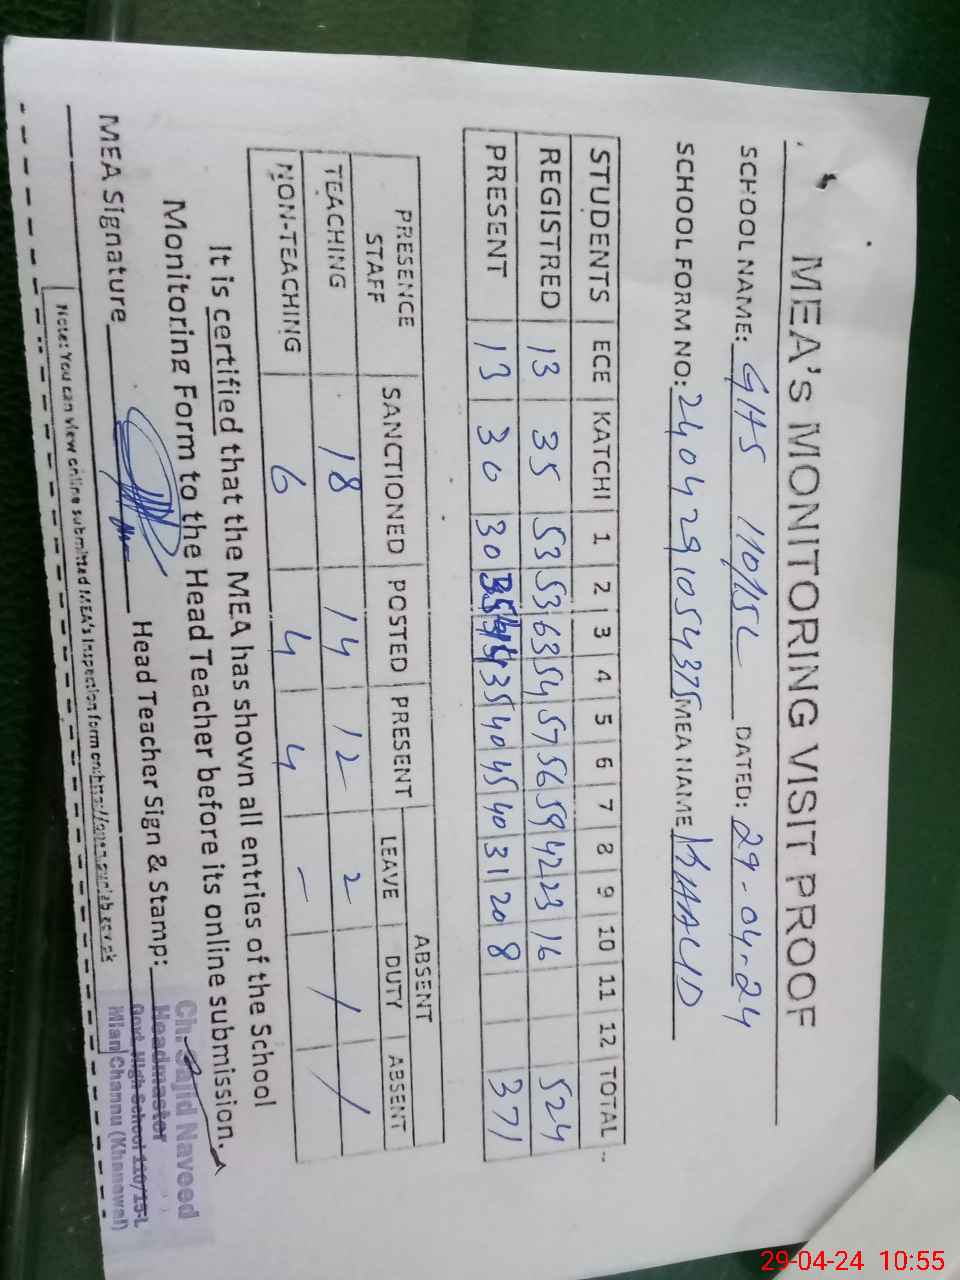 MEA's MONITORING VISIT PROOF
SCHOOL NAME: GHS 110/15L DATED: 29-04-24
SCHOOL FORM NO: 2404291054375 MEA NAME KHALID
STUDENTS ECE KATCHI 1 2 3 4 5 6 7 8 9 10 11 12 TOTAL
REGISTRED 13 35 53 53 63 54 57 56 59 42 23 16 524
PRESENT 13 30 30 35 44 35 40 45 40 31 20 8 371
PRESENCE STAFF SANCTIONED POSTED PRESENT ABSENT
LEAVE DUTY ABSENT
TEACHING 18 14 12 2 / /
NON-TEACHING 6 4 4 -
It is certified that the MEA has shown all entries of the School
Monitoring Form to the Head Teacher before its online submission.
MEA Signature Head Teacher Sign & Stamp:
Ch. Sajid Naveed
Headmaster
Govt. High School 110/15-L
Mian Channu (Khanewal)
Note: You can view online submitted MEA's Inspection form on:
29-04-24 10:55